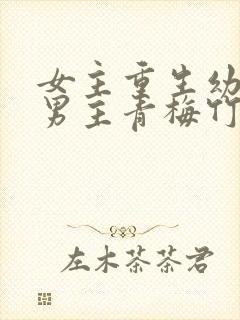 女主重生幼
男主青梅竹
左木茶茶君